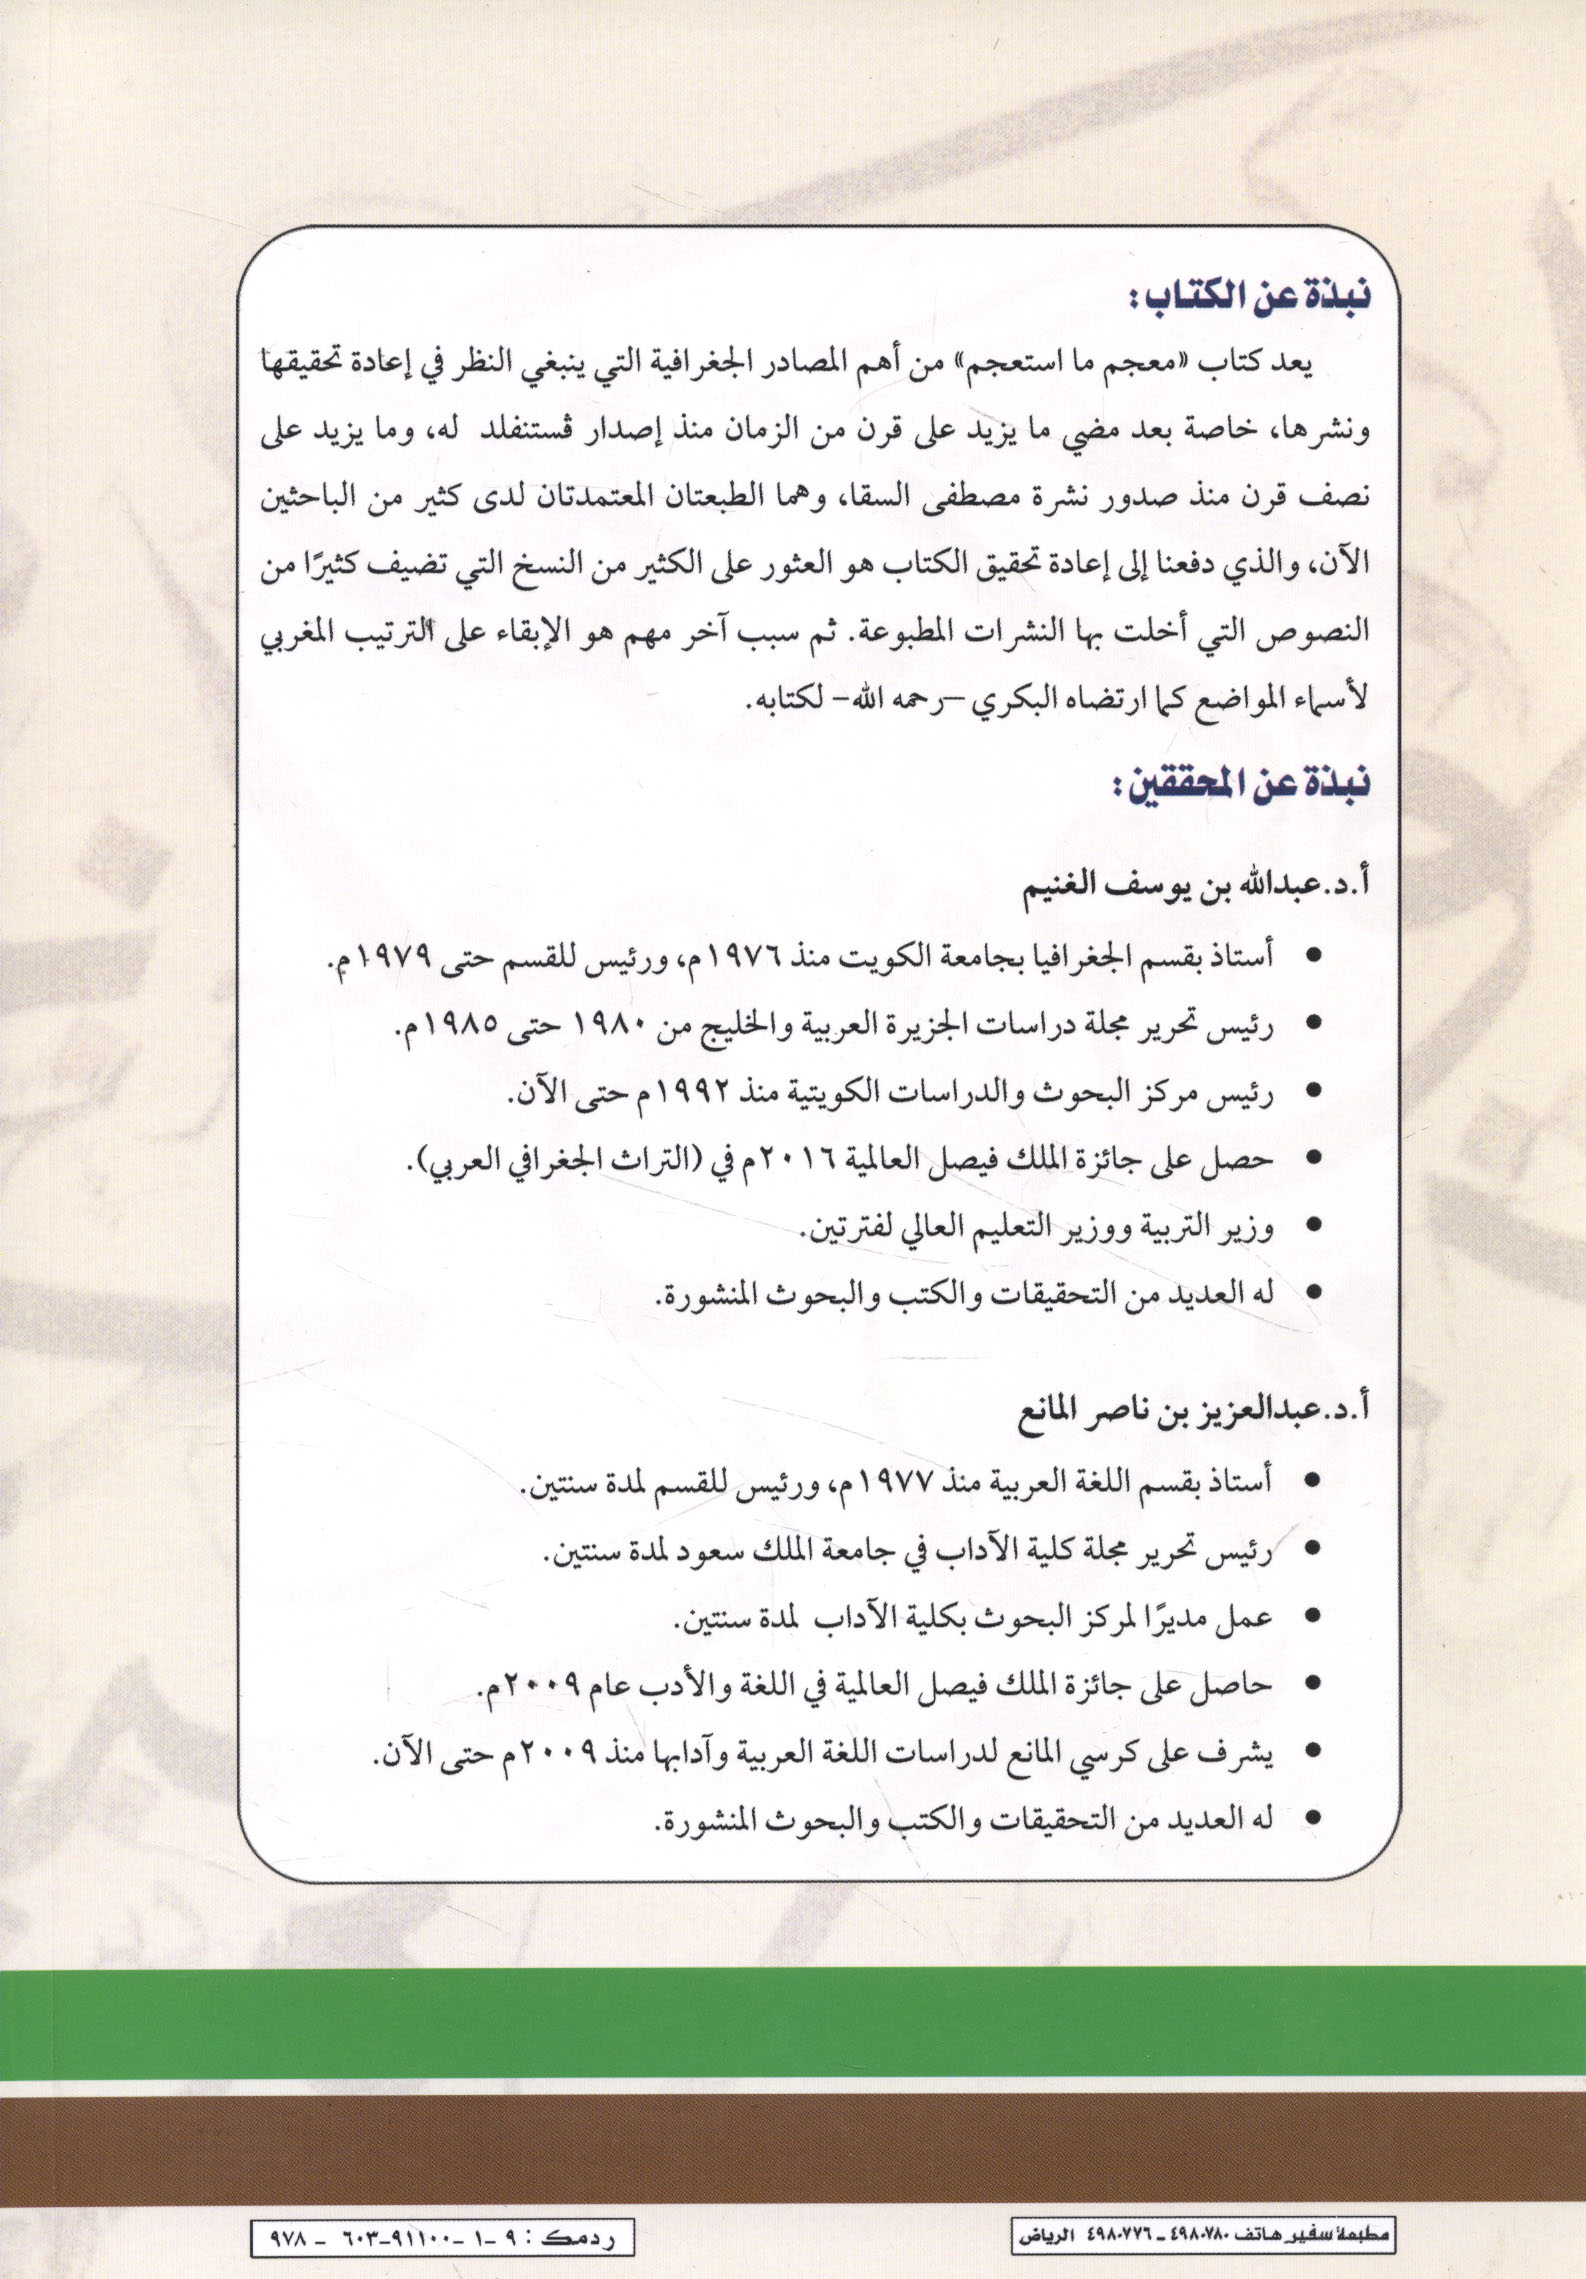 نبذة عن الكتاب:
يعد كتاب «معجم ما استعجم» من أهم المصادر الجغرافية التي ينبغي النظر في إعادة تحقيقها
ونشرها، خاصة بعد مضي ما يزيد على قرن من الزمان منذ إصدار ڤستنفلد له، وما يزيد على
نصف قرن منذ صدور نشرة مصطفى السقا، وهما الطبعتان المعتمدتان لدى كثير من الباحثين
الآن، والذي دفعنا إلى إعادة تحقيق الكتاب هو العثور على الكثير من النسخ التي تضيف كثيرًا من
النصوص التي أخلت بها النشرات المطبوعة. ثم سبب آخر مهم هو الإبقاء على الترتيب المغربي
لأسماء المواضع كما ارتضاه البكري –رحمه الله– لكتابه.
نبذة عن المحققين:
أ.د.عبدالله بن يوسف الغنيم
• أستاذ بقسم الجغرافيا بجامعة الكويت منذ ١٩٧٦م، ورئيس للقسم حتى ١٩٧٩م.
• رئيس تحرير مجلة دراسات الجزيرة العربية والخليج من ١٩٨٠ حتى ١٩٨٥م.
• رئيس مركز البحوث والدراسات الكويتية منذ ١٩٩٢م حتى الآن.
• حصل على جائزة الملك فيصل العالمية ٢٠١٦م في (التراث الجغرافي العربي).
• وزير التربية ووزير التعليم العالي لفترتين.
• له العديد من التحقيقات والكتب والبحوث المنشورة.
أ.د.عبدالعزيز بن ناصر المانع
• أستاذ بقسم اللغة العربية منذ ١٩٧٧م، ورئيس للقسم لمدة سنتين.
• رئيس تحرير مجلة كلية الآداب في جامعة الملك سعود لمدة سنتين.
• عمل مديرًا لمركز البحوث بكلية الآداب لمدة سنتين.
• حاصل على جائزة الملك فيصل العالمية في اللغة والأدب عام ٢٠٠٩م.
• يشرف على كرسي المانع لدراسات اللغة العربية وآدابها منذ ٢٠٠٩م حتى الآن.
• له العديد من التحقيقات والكتب والبحوث المنشورة.
مطبعة سفير هاتف ٤٩٨٠٧٨٠ ـ ٤٩٨٠٧٧٦ الرياض
ردمك : ٩ -١ -٩١١٠٠-٦٠٣ - ٩٧٨